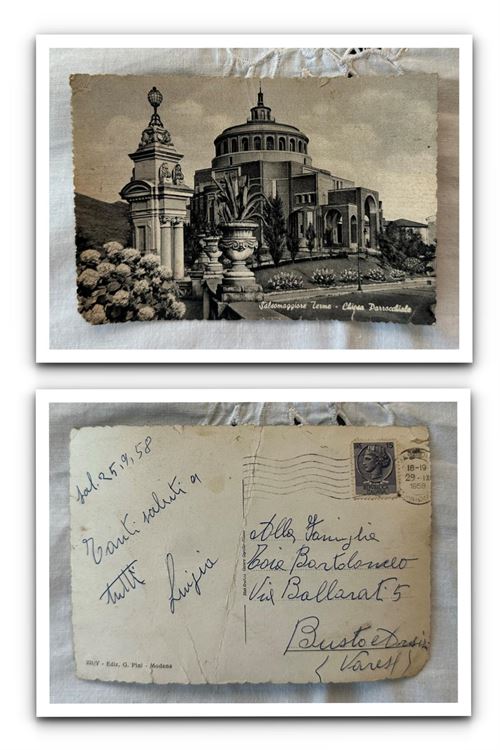 Salsomaggiore Terme - Chiesa Parrocchiale
Sal. 25.9.58
Tanti saluti a
tutti Luigia
18-19
29-IX
1958
Alla Famiglia
Coia Bartolomeo
Via Ballarati 5
Busto Arsizio
(Varese)
221/V - Ediz. G. Pini - Modena